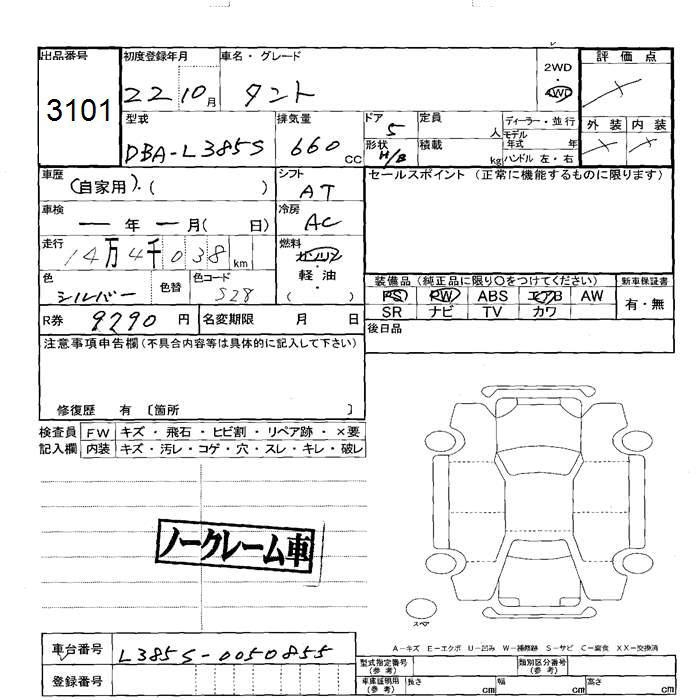 出品番号 初度登録年月 車名・グレード 評価点
3101 22 10月 タント 2WD・4WD
型式 排気量 ドア 定員 ディーラー・並行 外装 内装
DBA-L385S 660cc 5 人 モデル年式 年
形状 H/B 積載 kg ハンドル 左・右
車歴 シフト セールスポイント (正常に機能するものに限ります)
(自家用)・( ) AT
車検 冷房
— 年 — 月( 日) AC
走行 燃料
14万4千038km ガソリン
軽油
色 色替 色コード ( ) 装備品 (純正品に限り○をつけてください) 新車保証書
シルバー S28 PS PW ABS エアB AW 有・無
SR ナビ TV カワ
R券 9290 円 名変期限 月 日 後日品
注意事項申告欄(不具合内容等は具体的に記入して下さい)
修復歴 有 〔箇所 〕
検査員 FW キズ・飛石・ヒビ割・リペア跡・×要
記入欄 内装 キズ・汚レ・コゲ・穴・スレ・キレ・破レ
ノークレーム車
スペア
A-キズ E-エクボ U-凹み W-補修跡 S-サビ C-腐食 XX-交換済
車台番号 L385S-0050855 型式指定番号(参考) 類別区分番号(参考)
登録番号 車庫証明用(参考) 長さ cm 幅 cm 高さ cm